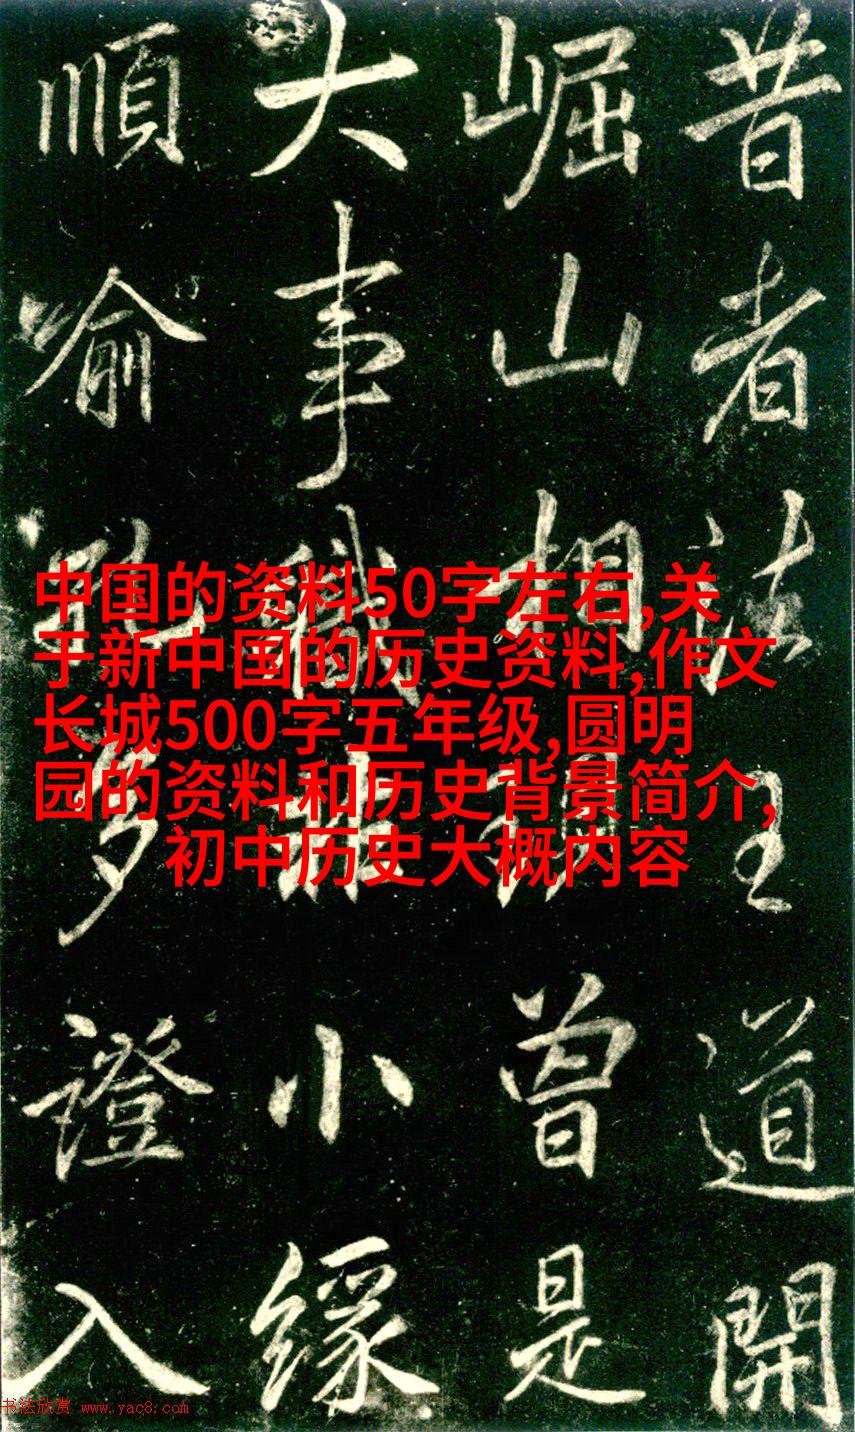 昔者法王道開
崛山相曾是
大事職小緣
順喻多證入
中国的资料50字左右,关
于新中国的历史资料,作文
长城500字五年级,圆明
园的资料和历史背景简介,
初中历史大概内容
书法欣赏 www.yac8.com